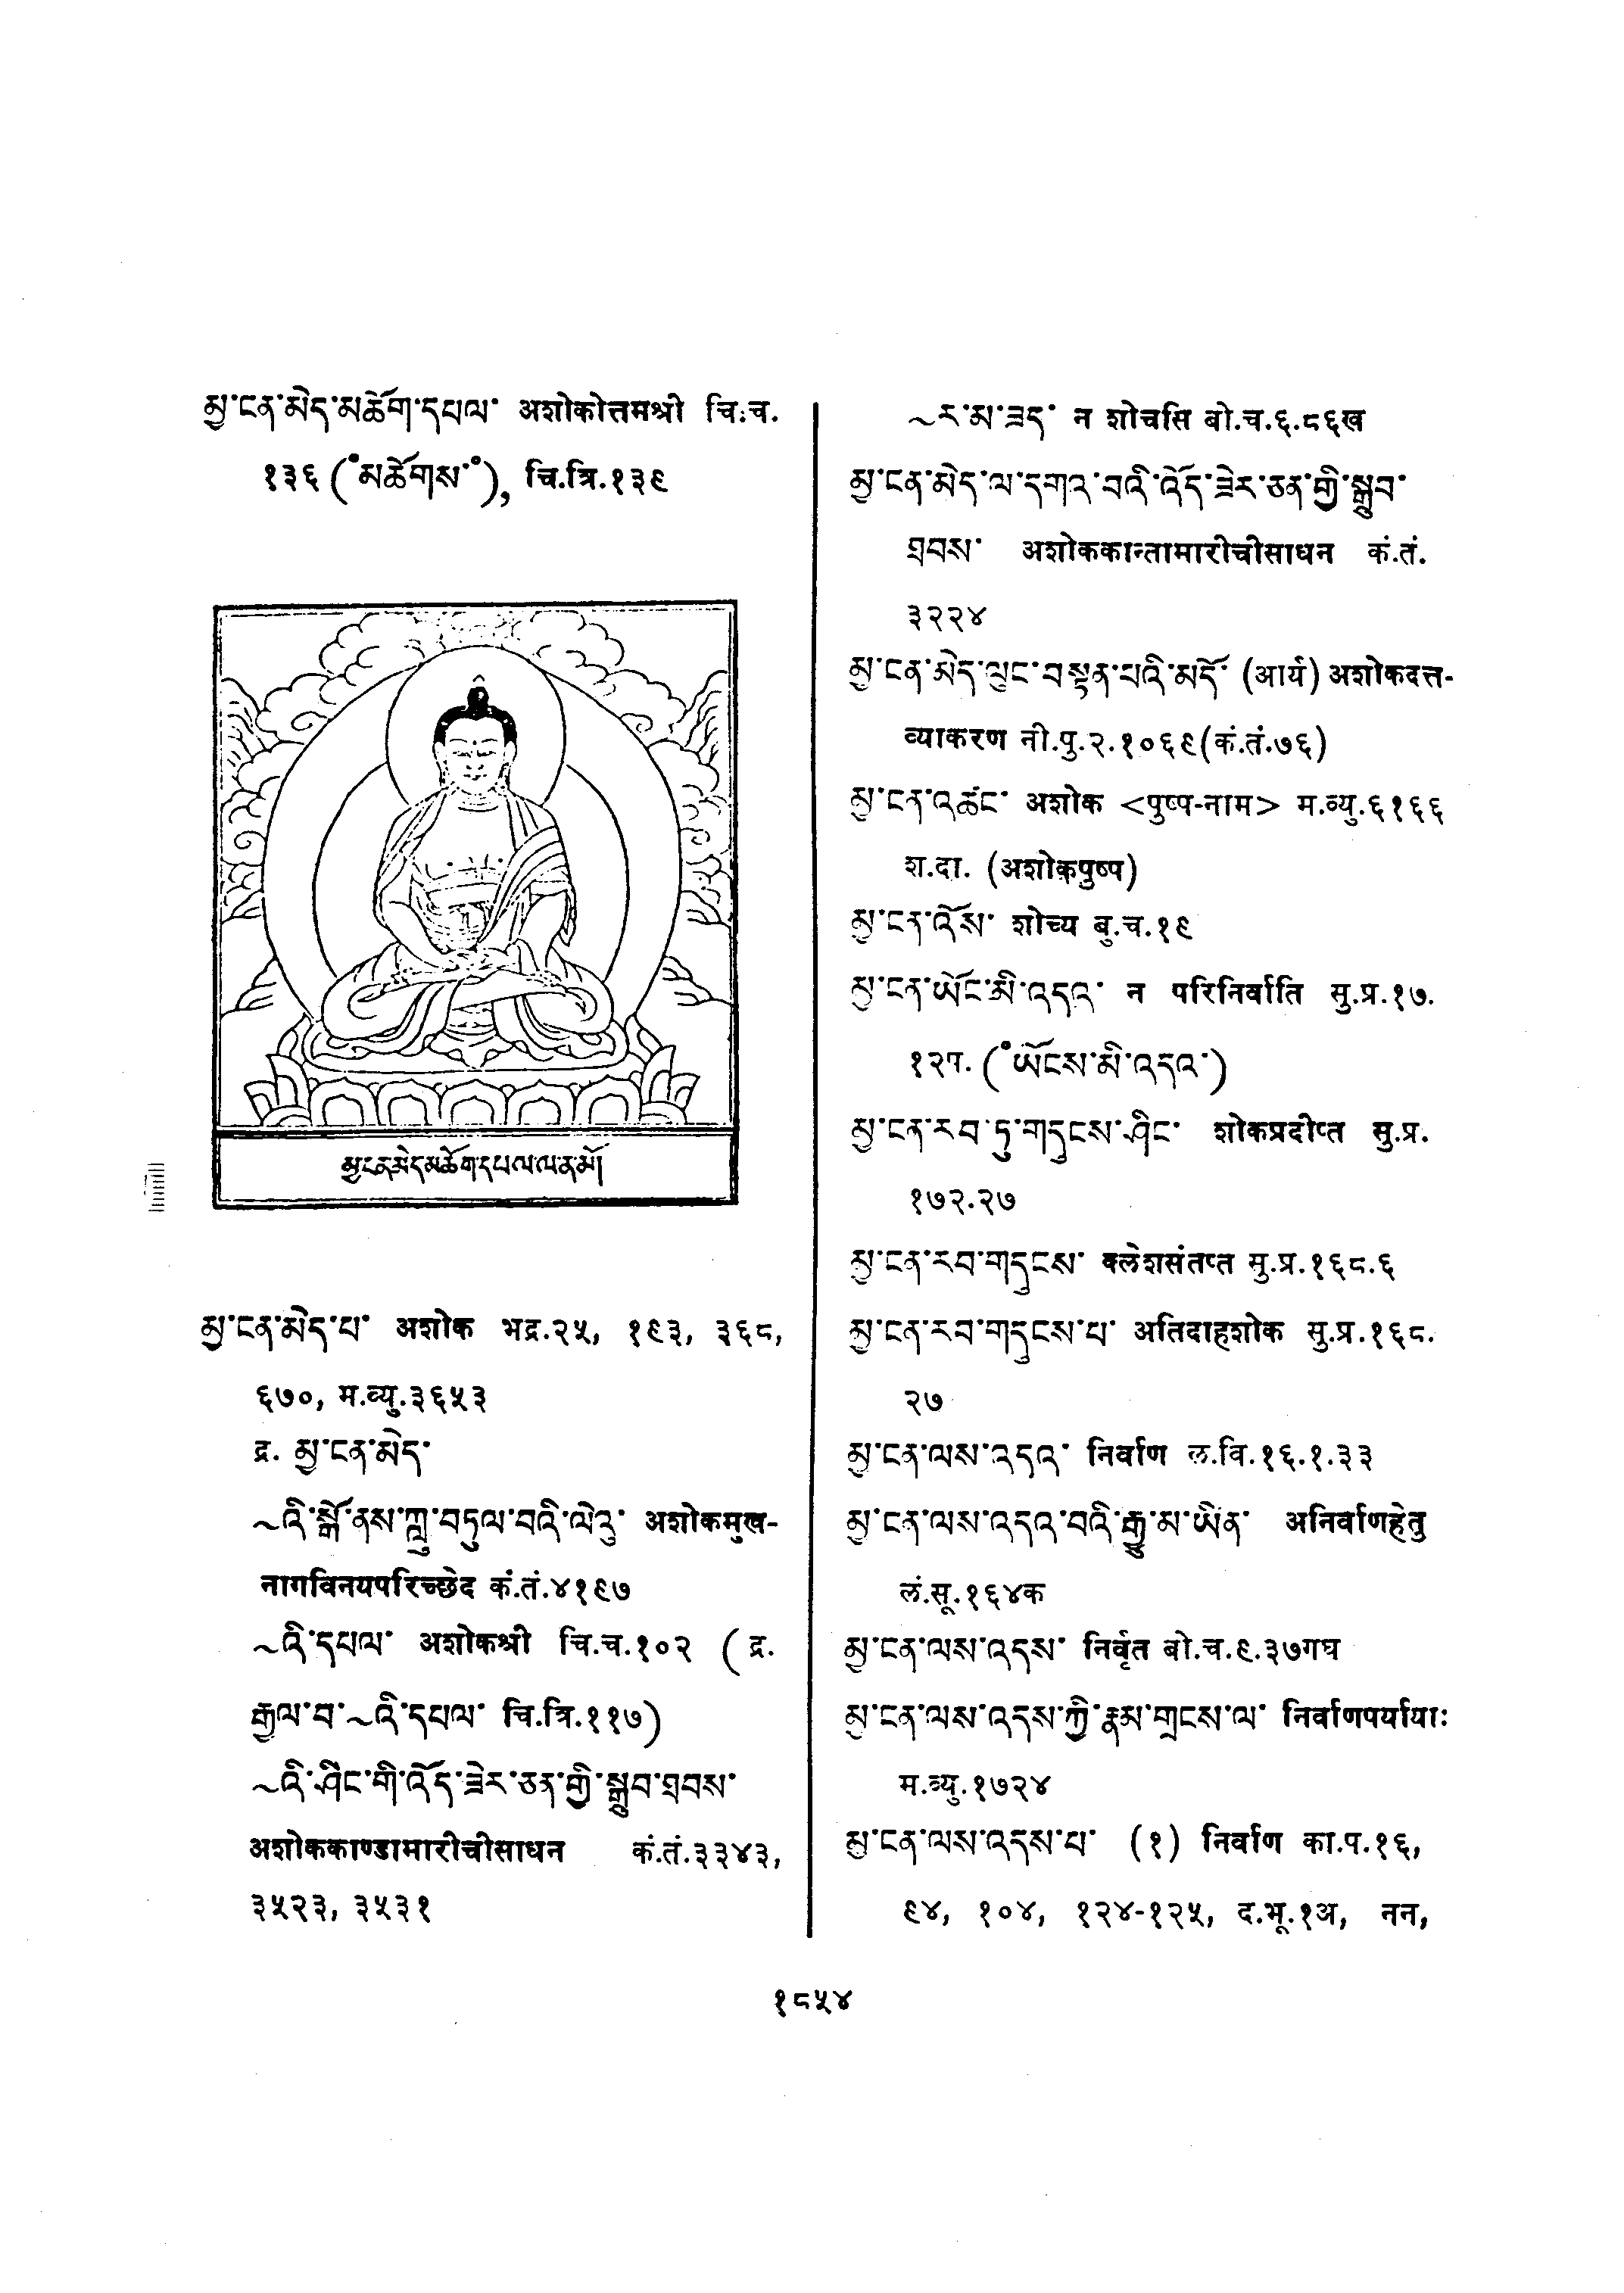 མྱ་ངན་མེད་མཆོག་དཔལ་ अशोकोत्तमश्री चि.च.
१३६ (༠མཆོགས་༠), चि.त्रि.१३९
མྱ་ངན་མེད་མཆོག་དཔལ་ལ་ན་མོ།
མྱ་ངན་མེད་པ་ अशोक भद्र.२५, १९३, ३६८,
६७०, म.व्यु.३६५३
द्र. མྱ་ངན་མེད་
~འི་སྒོ་ནས་ཀླུ་བཏུལ་བའི་ལེའུ་ अशोकमुख-
नागविनयपरिच्छेद कं.तं.४१९७
~འི་དཔལ་ अशोकश्री चि.च.१०२ (द्र.
རྒྱལ་བ་~འི་དཔལ་ चि.त्रि.११७)
~འི་ཤིང་གི་འོད་ཟེར་ཅན་གྱི་སྒྲུབ་ཐབས་
अशोककाण्डामारीचीसाधन कं.तं.३३४३,
३५२३, ३५३१
~ར་མ་ཟད་ न शोचसि बो.च.६.८६ख
མྱ་ངན་མེད་ལ་དགའ་བའི་འོད་ཟེར་ཅན་གྱི་སྒྲུབ་
ཐབས་ अशोककान्तामारीचीसाधन कं.तं.
३२२४
མྱ་ངན་མེད་ལུང་བསྟན་པའི་མདོ་ (आर्य) अशोकदत्त-
व्याकरण नी.पु.२.१०६९(कं.तं.७६)
མྱ་ངན་འཚང་ अशोक <पुष्प-नाम> म.व्यु.६१६६
श.दा. (अशोकपुष्प)
མྱ་ངན་འོས་ शोच्य बु.च.१९
མྱ་ངན་ཡོང་མི་འདའ་ न परिनिर्वाति सु.प्र.१७.
१२त. (༠ཡོངས་མི་འདའ་)
མྱ་ངན་རབ་ཏུ་གདུངས་ཤིང་ शोकप्रदीप्त सु.प्र.
१७२.२७
མྱ་ངན་རབ་གདུངས་ क्लेशसंतप्त सु.प्र.१६८.६
མྱ་ངན་རབ་གདུངས་པ་ अतिदाहशोक सु.प्र.१६८.
२७
མྱ་ངན་ལས་འདའ་ निर्वाण ल.वि.१६.१.३३
མྱ་ངན་ལས་འདའ་བའི་རྒྱུ་མ་ཡིན་ अनिर्वाणहेतु
लं.सू.१६४क
མྱ་ངན་ལས་འདས་ निर्वृत बो.च.९.३७गघ
མྱ་ངན་ལས་འདས་ཀྱི་རྣམ་གྲངས་ལ་ निर्वाणपर्यायाः
म.व्यु.१७२४
མྱ་ངན་ལས་འདས་པ་ (१) निर्वाण का.प.१६,
९४, १०४, १२४-१२५, द.भू.१अ, नन,
१८५४